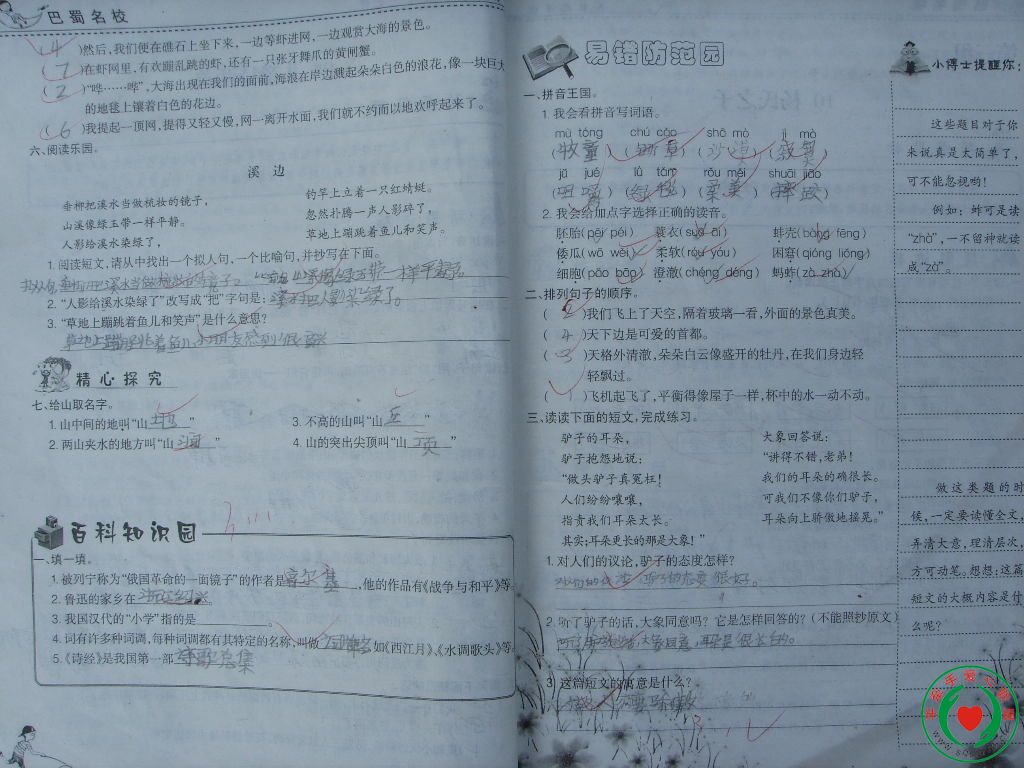 巴蜀名校
(4)然后,我们便在礁石上坐下来,一边等虾进网,一边观赏大海的景色。
(7)在虾网里,有欢蹦乱跳的虾,还有一只张牙舞爪的黄闸蟹。
(2)“哗……哗”,大海出现在我们的面前,海浪在岸边溅起朵朵白色的浪花,像一块巨大
的地毯上镶着白色的花边。
(6)我提起一顶网,提得又轻又慢,网一离开水面,我们就不约而以地欢呼起来了。
六、阅读乐园。
溪 边
垂柳把溪水当做梳妆的镜子,
山溪像绿玉带一样平静。
人影给溪水染绿了,
钓竿上立着一只红蜻蜓。
忽然扑腾一声人影碎了,
草地上蹦跳着鱼儿和笑声。
1. 阅读短文,请从中找出一个拟人句,一个比喻句,并抄写在下面。
2. “人影给溪水染绿了”改写成“把”字句是:溪水把人影染绿了。
3. “草地上蹦跳着鱼儿和笑声”是什么意思?
精心探究
七、给山取名字。
1. 山中间的地叫“山”
2. 两山夹水的地方叫“山涧”
3. 不高的山叫“山丘”
4. 山的突出尖顶叫“山顶”
百科知识园
一、填一填。
1. 被列宁称为“俄国革命的一面镜子”的作者是高尔基,他的作品有《战争与和平》等。
2. 鲁迅的家乡在浙江绍兴。
3. 我国汉代的“小学”指的是。
4. 词有许多种词调,每种词调都有其特定的名称,叫做词牌名如《西江月》、《水调歌头》等。
5. 《诗经》是我国第一部诗歌总集
易错防范园
一、拼音王国。
1. 我会看拼音写词语。
mù tóng chú cǎo shā mò jì mò
(牧童)(锄草)(沙漠)(寂寞)
jǔ jué lǚ tǎng róu měi shuāi jiāo
(咀嚼)( )(柔美)(摔跤)
2. 我会给加点字选择正确的读音。
胚胎(pēi péi) 蓑衣(suō āi) 蚌壳(bàng fēng)
倭瓜(wō wēi) 柔软(róu yóu) 困窘(qióng jiǒng)
细胞(pāo bāo) 澄澈(chéng déng) 蚂蚱(zà zhà)
二、排列句子的顺序。
(2)我们飞上了天空,隔着玻璃一看,外面的景色真美。
(4)天下边是可爱的首都。
(3)天格外清澈,朵朵白云像盛开的牡丹,在我们身边轻
轻飘过。
(1)飞机起飞了,平衡得像屋了一样,杯中的水一动不动。
三、读读下面的短文,完成练习。
驴子的耳朵,
驴子抱怨地说:
“做头驴子真冤枉!
人们纷纷嚷嚷,
指责我们耳朵太长。
其实;耳朵更长的那是大象!”
大象回答说:
“讲得不错,老弟!
我们的耳朵的确很长。
可我们不像你们驴子,
耳朵向上骄傲地摇晃。”
1. 对人们的议论,驴子的态度怎样?
对人们的议论,驴子的态度很好。
2. 听了驴子的话,大象同意吗?它是怎样回答的?(不能照抄原文)
3. 这篇短文的寓意是什么?
小博士提醒你:
这些题目对于你
来说真是太简单了,
可不能忽视哟!
例如:蚱可是读
“zhà”,一不留神就读
成“zà”。
做这类题的时
候,一定要读懂全文,
弄清大意,理清层次,
方可动笔。想想:这篇
短文的大概内容是什
么呢?